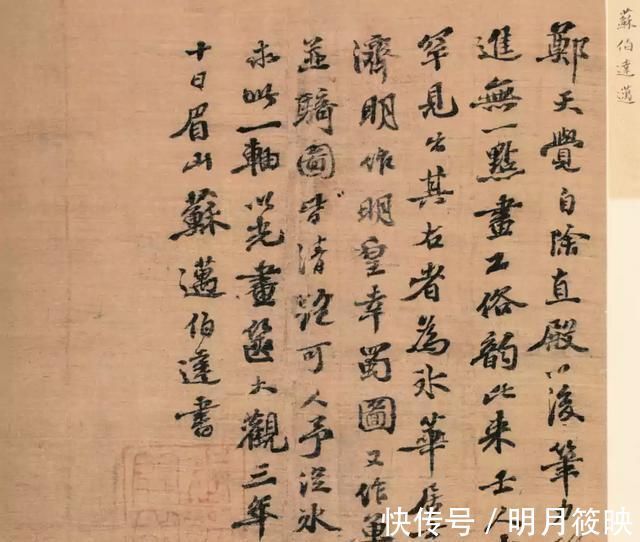 蘇伯達邁
鄭天覺自除直殿以後筆力
進無一點畫工俗韵比來士人
罕見出其右者為冰華居
濟明作明皇幸蜀圖又作單
並騎圖皆清絕可人予從冰
求此一軸以光畫篋大觀三年
十日眉山蘇邁伯達書
快传号／明月筱映